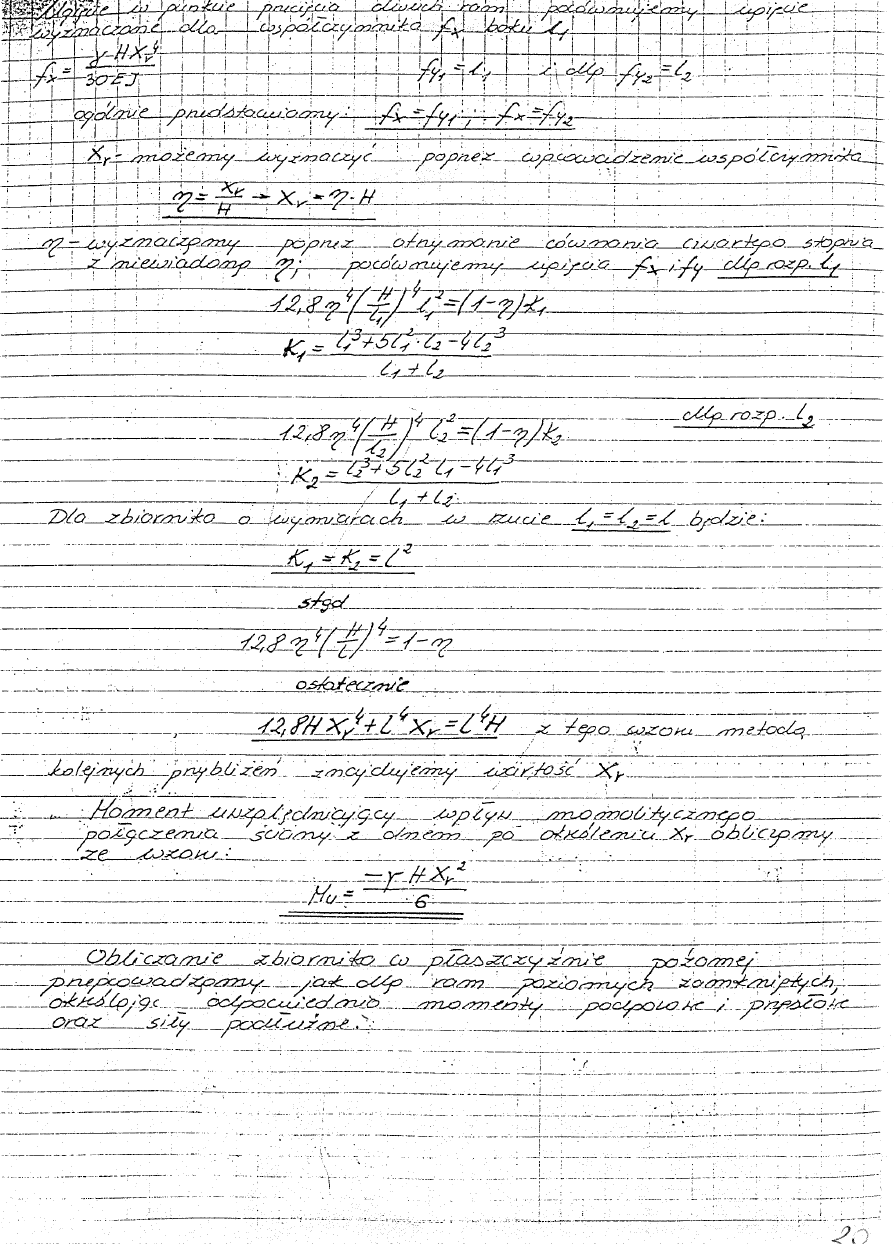 Ugięcie w punkcie przecięcia dwóch ram porównujemy ugięcie
wyznaczone dla współczynnika fx boku l₁
fx = γ·H·Xᵣ⁴ / 30EJ fy₁ = l₁ i dla fy₂ = l₂
ogólnie przedstawiamy: fx = fy₁ ; fx = fy₂
Xᵣ - możemy wyznaczyć poprzez wprowadzenie współczynnika
η = Xᵣ/H → Xᵣ = η·H
η - wyznaczamy poprzez otrzymanie równania czwartego stopnia
z niewiadomą η; porównujemy ugięcia fx i fy dla rozp. l₁
12,8 η⁴ (H/l₁)⁴ l₁² = (1-η) K₁
K₁ = (l₁³ + 5l₁²·l₂ - 4l₂³) / (l₁ + l₂)
dla rozp. l₂
12,8 η⁴ (H/l₂)⁴ l₂² = (1-η) K₂
K₂ = (l₂³ + 5l₂² l₁ - 4l₁³) / (l₁ + l₂)
Dla zbiornika o wymiarach w rzucie l₁ = l₂ = l będzie:
K₁ = K₂ = l²
stąd
12,8 η⁴ (H/l)⁴ = 1-η
ostatecznie
12,8 H Xᵣ⁴ + l⁴ Xᵣ = l⁴ H z tego wzoru metodą
kolejnych przybliżeń znajdujemy wartość Xᵣ
Moment uwzględniający wpływ monolitycznego
połączenia ściany z dnem po określeniu Xᵣ obliczamy
ze wzoru:
Mu = -γ H Xᵣ² / 6
Obliczanie zbiornika w płaszczyźnie poziomej
przeprowadzamy jak dla ram poziomych zamkniętych,
określając odpowiednio momenty podporowe i przęsłowe
oraz siły podłużne.
20